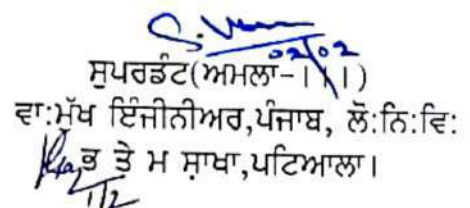 02/02
ਸੁਪਰਡੰਟ(ਅਮਲਾ-।।।)
ਵਾ:ਮੁੱਖ ਇੰਜੀਨੀਅਰ,ਪੰਜਾਬ, ਲੋ:ਨਿ:ਵਿ:
ਭ ਤੇ ਮ ਸ਼ਾਖਾ,ਪਟਿਆਲਾ।
1/2